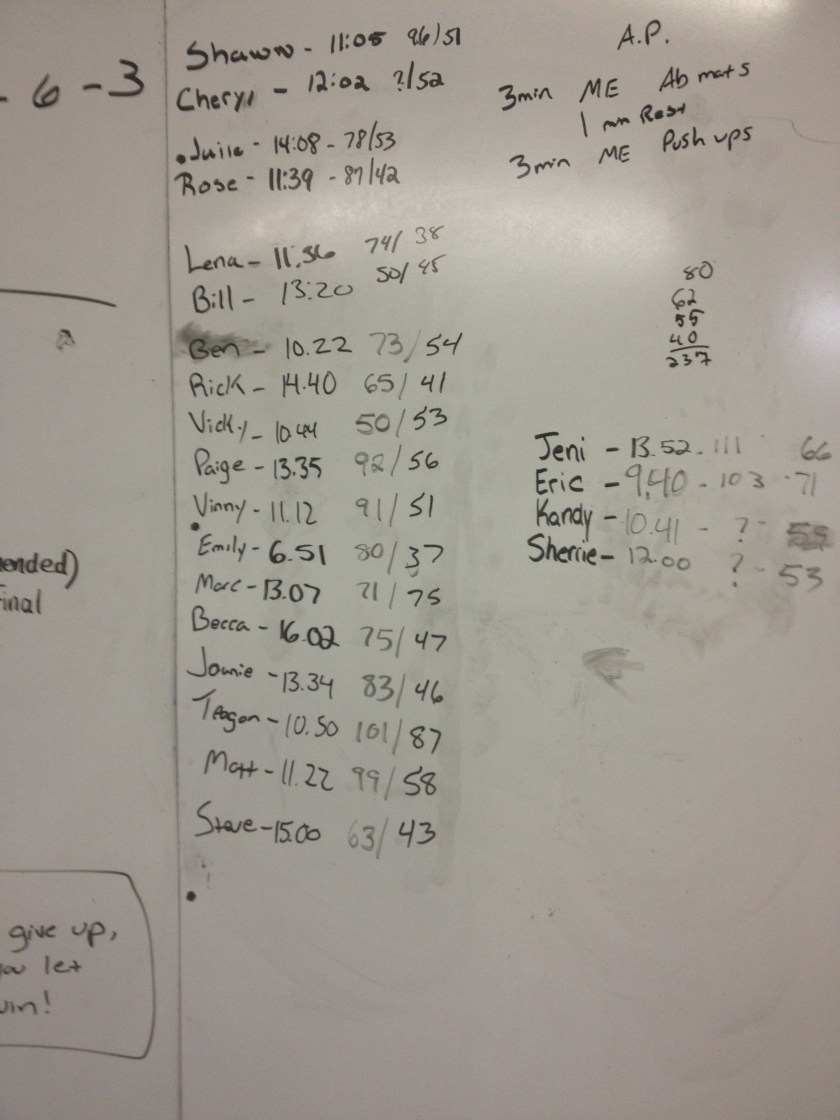 - 6 - 3
Shawn - 11:05 96/51
Cheryl - 12:02 ?/52
Julie - 14:08 - 78/53
Rose - 11:39 - 87/42
Lena - 11.56 74/38
Bill - 13:20 50/45
Ben - 10.22 73/54
Rick - 14.40 65/41
Vicky - 10.44 50/53
Paige - 13.35 92/56
Vinny - 11.12 91/51
Emily - 6.51 80/37
Marc - 13.07 71/75
Becca - 16.02 75/47
Jamie - 13.34 83/46
Teagan - 10.50 101/87
Matt - 11.22 99/58
Steve - 15.00 63/43
A.P.
3min ME Ab mats
1 mn Rest
3min ME Push ups
80
62
55
40
237
Jeni - 13.52 - 111 66
Eric - 9.40 - 103 - 71
Kandy - 10.41 - ? - 55
Sherrie - 12.00 ? - 53
ended)
inal
give up,
ou let
win!